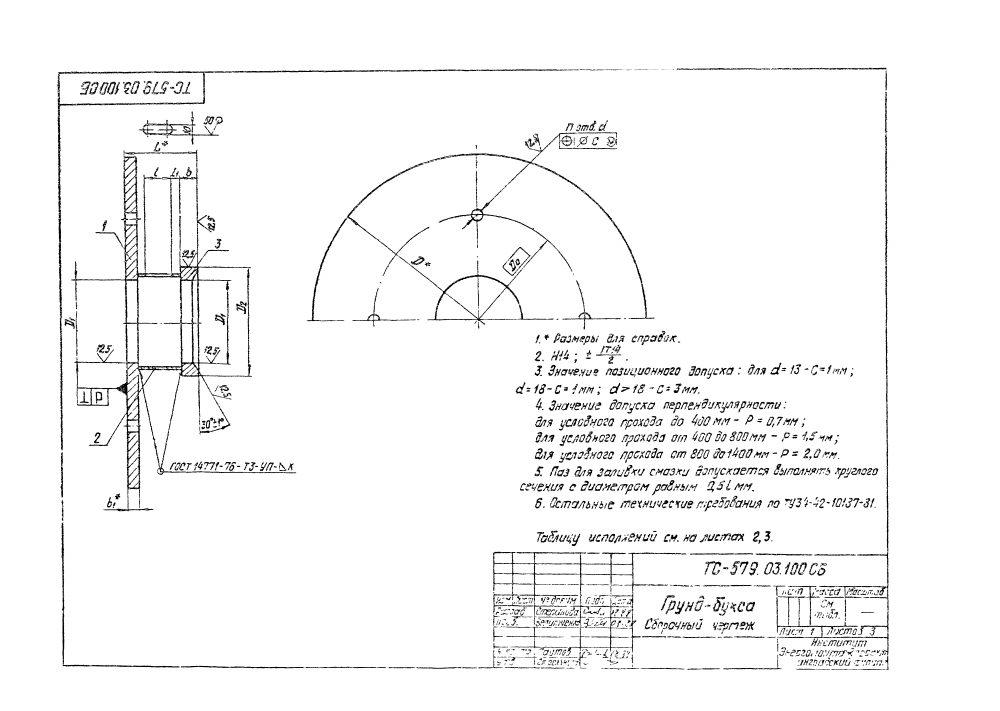 ТС-579.03.100 СБ
50
L*
l
L₁
b
12,5
1
3
12,5
D₁
D₁
D₂
12,5
12,5
12,5
30°±1°
2
ГОСТ 14771-76-Т3-УП-◺К
b₁*
n отв. d
12,5
⌀ C
D*
D₀
1.* Размеры для справок.
2. H14 ; ± IT14/2 .
3. Значение позиционного допуска: для d=13-C=1мм;
d=18-C=1мм; d>18-C=3мм.
4. Значение допуска перпендикулярности:
для условного прохода до 400мм-P=0,7мм;
для условного прохода от 400 до 800мм-P=1,5мм;
для условного прохода от 800 до 1400мм-P=2,0мм.
5. Паз для заливки смазки допускается выполнять круглого
сечения с диаметром равным 0,5l мм.
6. Остальные технические требования по ТУ34-42-10137-81.
Таблицу исполнений см. на листах 2,3.
ТС-579.03.100 СБ
Грунд-букса
Сборочный чертеж
Масса Масштаб
См. табл. —
Лист 1 Листов 3
Институт